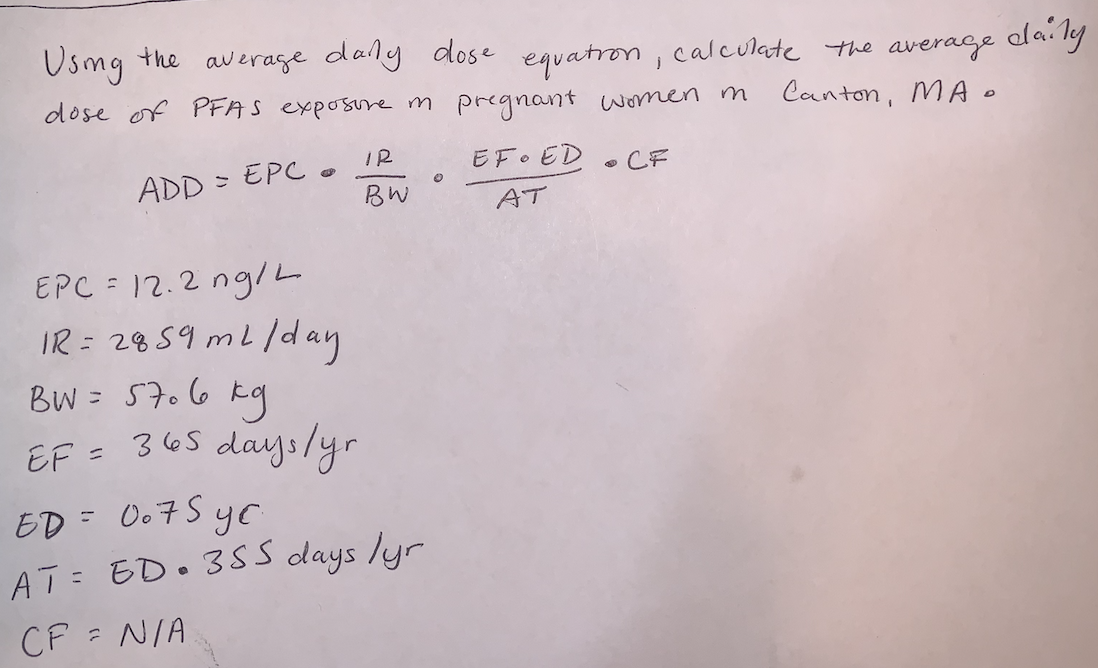 Using the average daily dose equation, calculate the average daily
dose of PFAS exposure in pregnant women in Canton, MA.
ADD = EPC • IR/BW • EF•ED/AT • CF
EPC = 12.2 ng/L
IR = 2859 mL/day
BW = 57.6 kg
EF = 365 days/yr
ED = 0.75 yr
AT = ED • 355 days/yr
CF = N/A